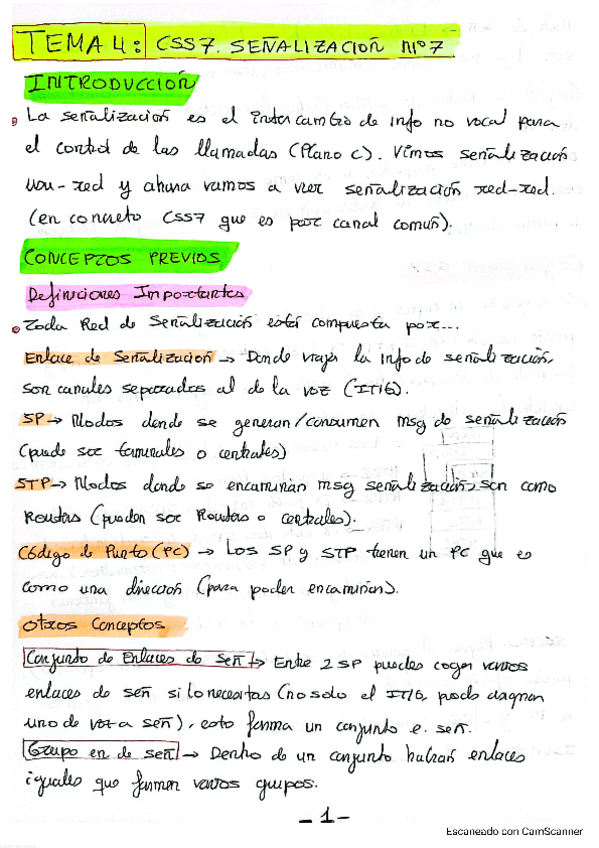 TEMA 4: CSS7. SEÑALIZACIÓN Nº7
INTRODUCCIÓN
• La señalización es el intercambio de info no vocal para
el control de las llamadas (Plano C). Vimos señalización
usu-red y ahora vamos a ver señalización red-red.
(en concreto CSS7 que es por canal común).
CONCEPTOS PREVIOS
Definiciones Importantes
• Toda Red de Señalización está compuesta por...
Enlace de Señalización → Donde viaja la info de señalización,
son canales separados al de la voz (IT16).
SP → Nodos donde se generan/consumen msg de señalización
(puede ser terminales o centrales)
STP → Nodos donde se encaminan msg señalización, son como
Routers (pueden ser Routers o centrales).
Código de Punto (PC) → Los SP y STP tienen un PC que es
como una dirección (para poder encaminar).
Otros Conceptos
Conjunto de Enlaces de Señ → Entre 2 SP puedes coger varios
enlaces de señ si lo necesitas (no solo el IT16, puedo
uno de voz a señ), esto forma un conjunto e. señ.
Grupo en de señ → Dentro de un conjunto habrá enlaces
iguales que forman varios grupos.
- 1 -
Escaneado con CamScanner